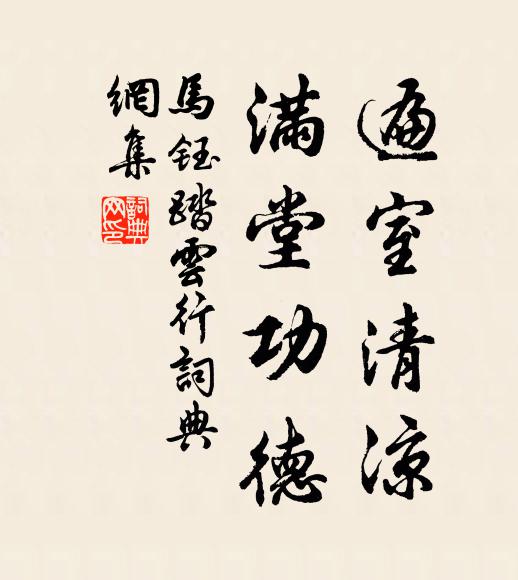 遍室清涼
滿堂功德
馬鈺踏雲行詞典
網集
詞典
网印